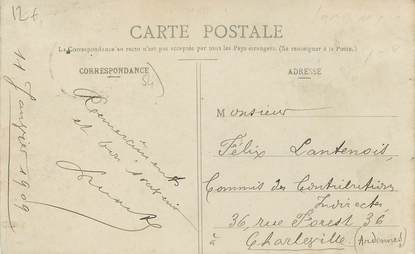 12€
CARTE POSTALE
La Correspondance au recto n'est pas acceptée par tous les Pays étrangers. (Se renseigner à la Poste.)
CORRESPONDANCE
11 Janvier 1909
Remerciements
et bon souvenir
ADRESSE
Monsieur
Félix Lantenois,
Commis des Contributions
Indirectes
36, rue Forest, 36
à Charleville (Ardennes)